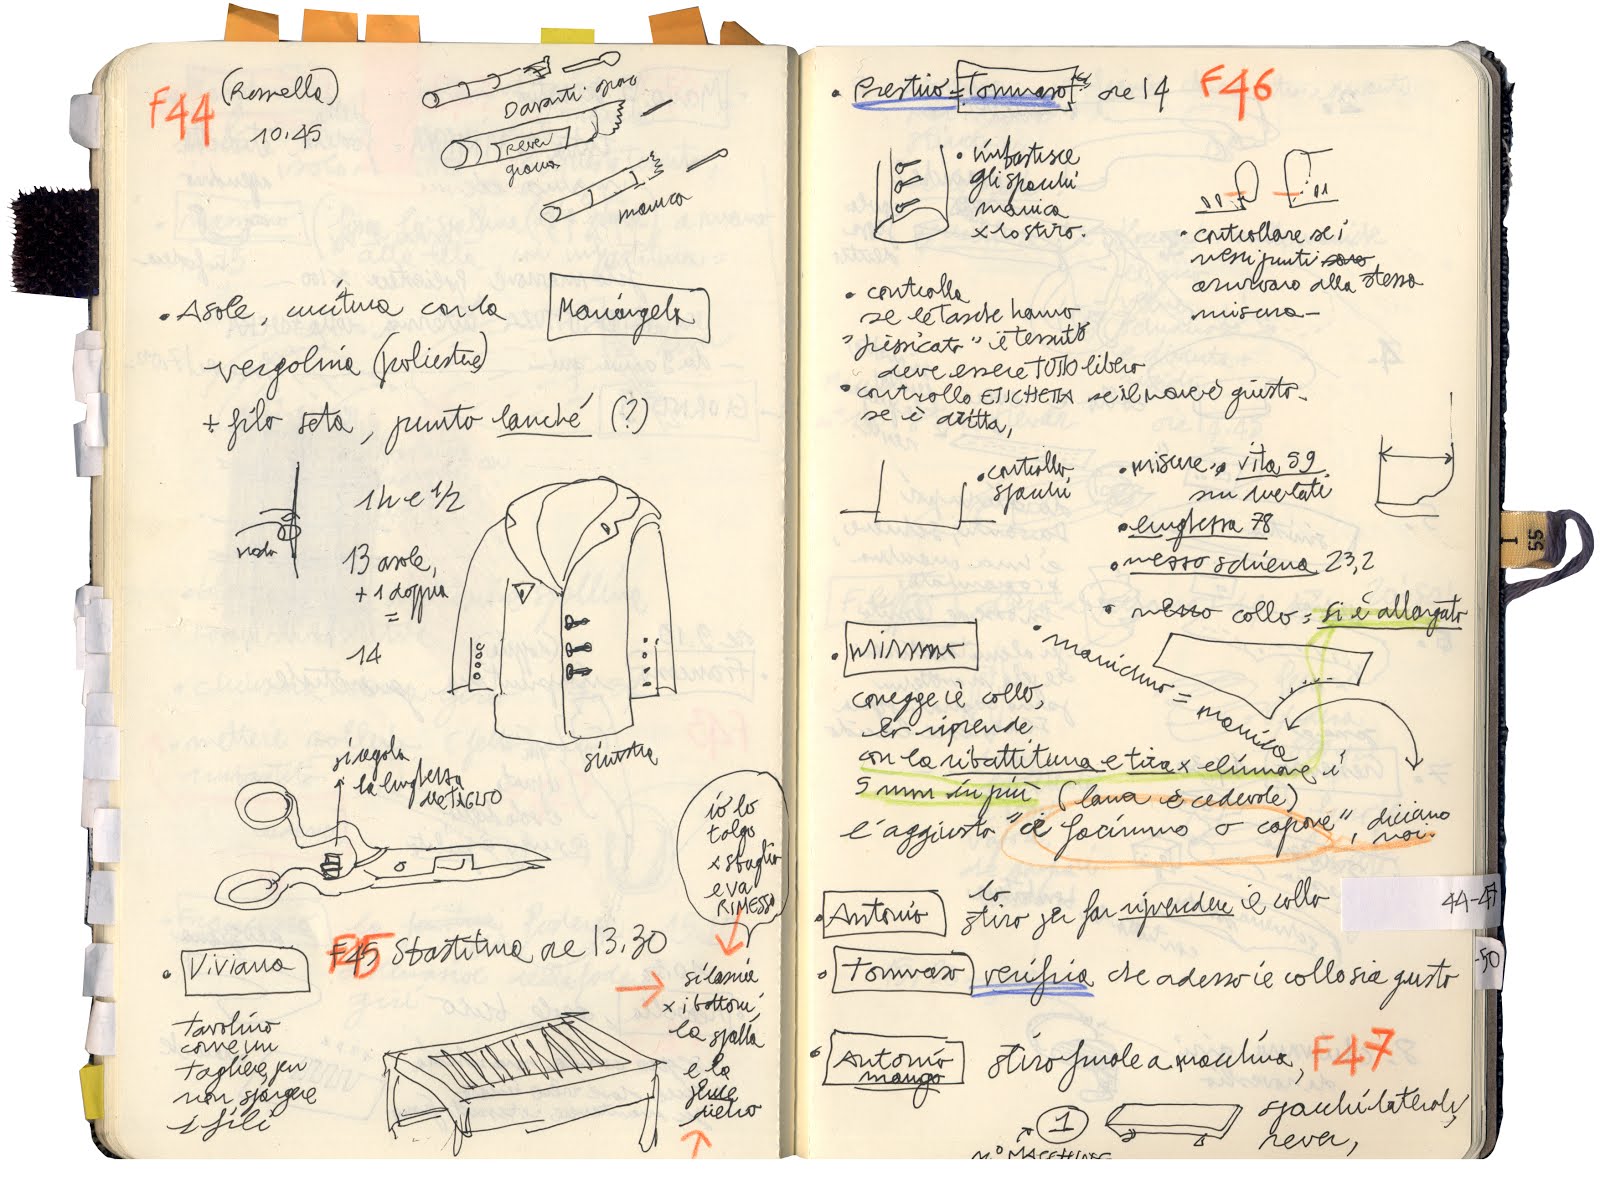 F44
10.45
Davanti
rever
giacca
manica
• Asole, cucitura con la
Mariangela
vergolina (poliestere)
+ filo seta, punto lanché (?)
nodo
1 h e 1/2
13 asole,
+ 1 doppia
=
14
sinistra
si regola
la lunghezza
del TAGLIO
io lo
tolgo
x sbaglio
e va
RIMESSO
• Viviana
F45 Sbastitura ore 13.30
tavolino
come un
tagliere, per
non spargere
i fili
si lascia
x i bottoni,
la spalla
e la
dietro
• = Tommaso ore 14 F46
• imbastisce
gli spacchi
manica
x lo stiro.
• controllare se i
mezzi punti
arrivano alla stessa
misura –
• controlla
se le tasche hanno
"pizzicato" il tessuto
deve essere TUTTO libero
• controllo ETICHETTA se il nome è giusto –
se è dritta,
• controllo
spacchi
• misure, vita 59
• lunghezza 78
• mezzo schiena 23,2
• mezzo collo = si è allargato
• manichino = manica
• Mimmo
corregge il collo,
lo riprende
con la ribattitura e tira x eliminare i
5 mm in più (lana è cedevole)
l'aggiusto "
o capone", diciamo
noi.
• Antonio
lo
stiro per far riprendere il collo
44-47
• Tommaso verifica che adesso il collo sia giusto
-50
• Antonio
mango
stiro finale a macchina, F47
1
N° MACCHINE
spacchi laterali,
rever,
I
55